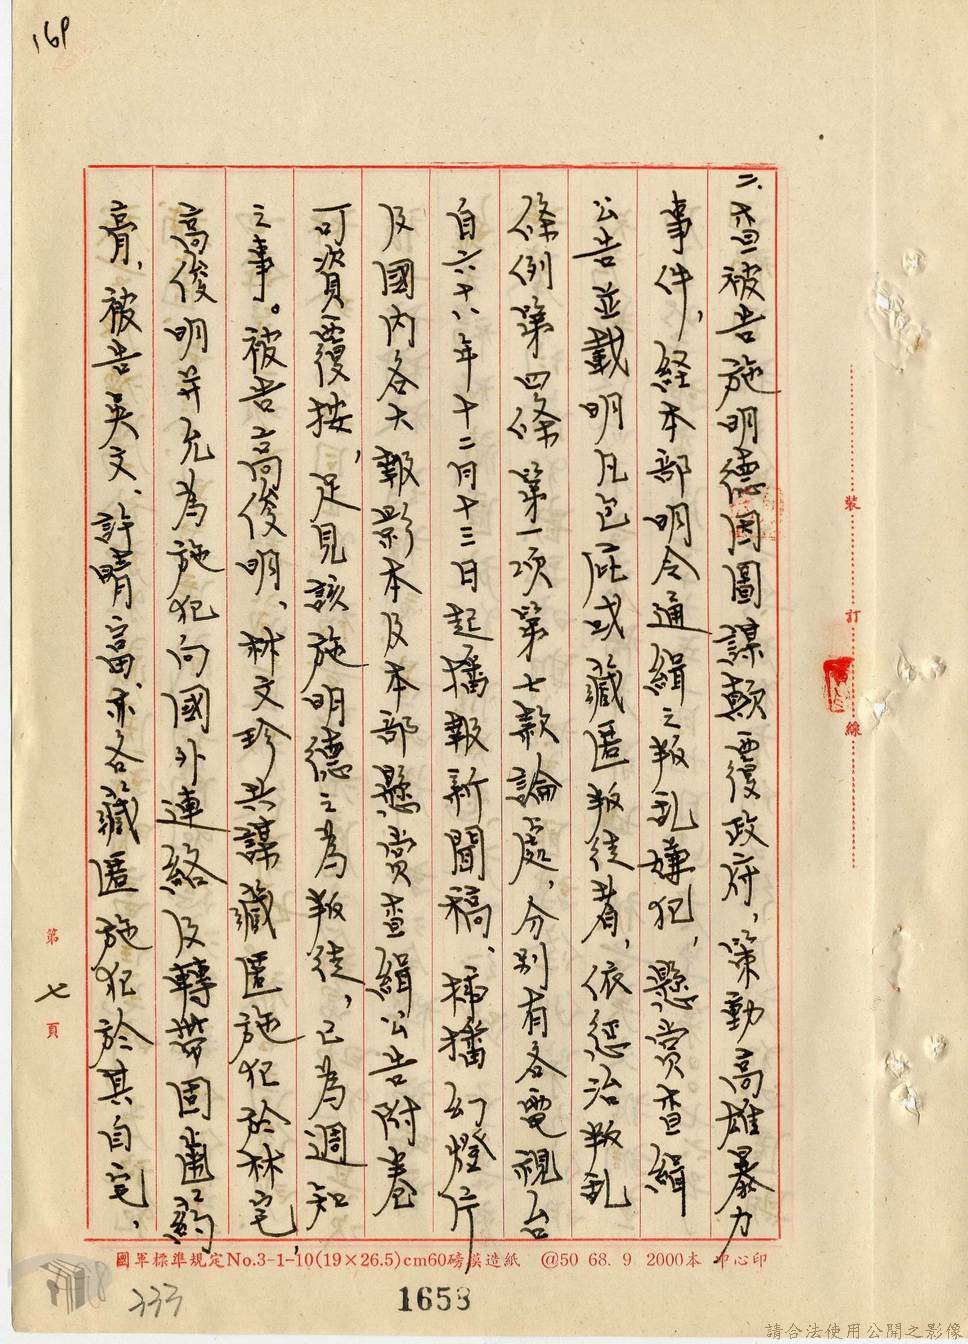 169
二、查被告施明德因圖謀顛覆政府，策動高雄暴力
事件，経本部明令通緝之叛乱嫌犯，懸賞查緝
公告並載明凡包庇或藏匿叛徒者，依惩治叛乱
條例第四條第一项第七款論處，分别有各電視台
自六十八年十二月十三日起播報新聞稿、插播幻燈片
及國内各大報影本及本部懸賞查緝公告附卷
可資覆按，足見該施明德之為叛徒，已為週知
之事。被告高俊明、林文珍共謀藏匿施犯於林宅，
高俊明并允為施犯向國外連絡及轉帶固齒葯
膏，被告吳文、許晴富亦各藏匿施犯於其自宅，
裝
訂
線
第七頁
國軍標準規定No.3-1-10(19×26.5)cm60磅模造紙 @50 68. 9 2000本 中心印
333
1658
請合法使用公開之影像